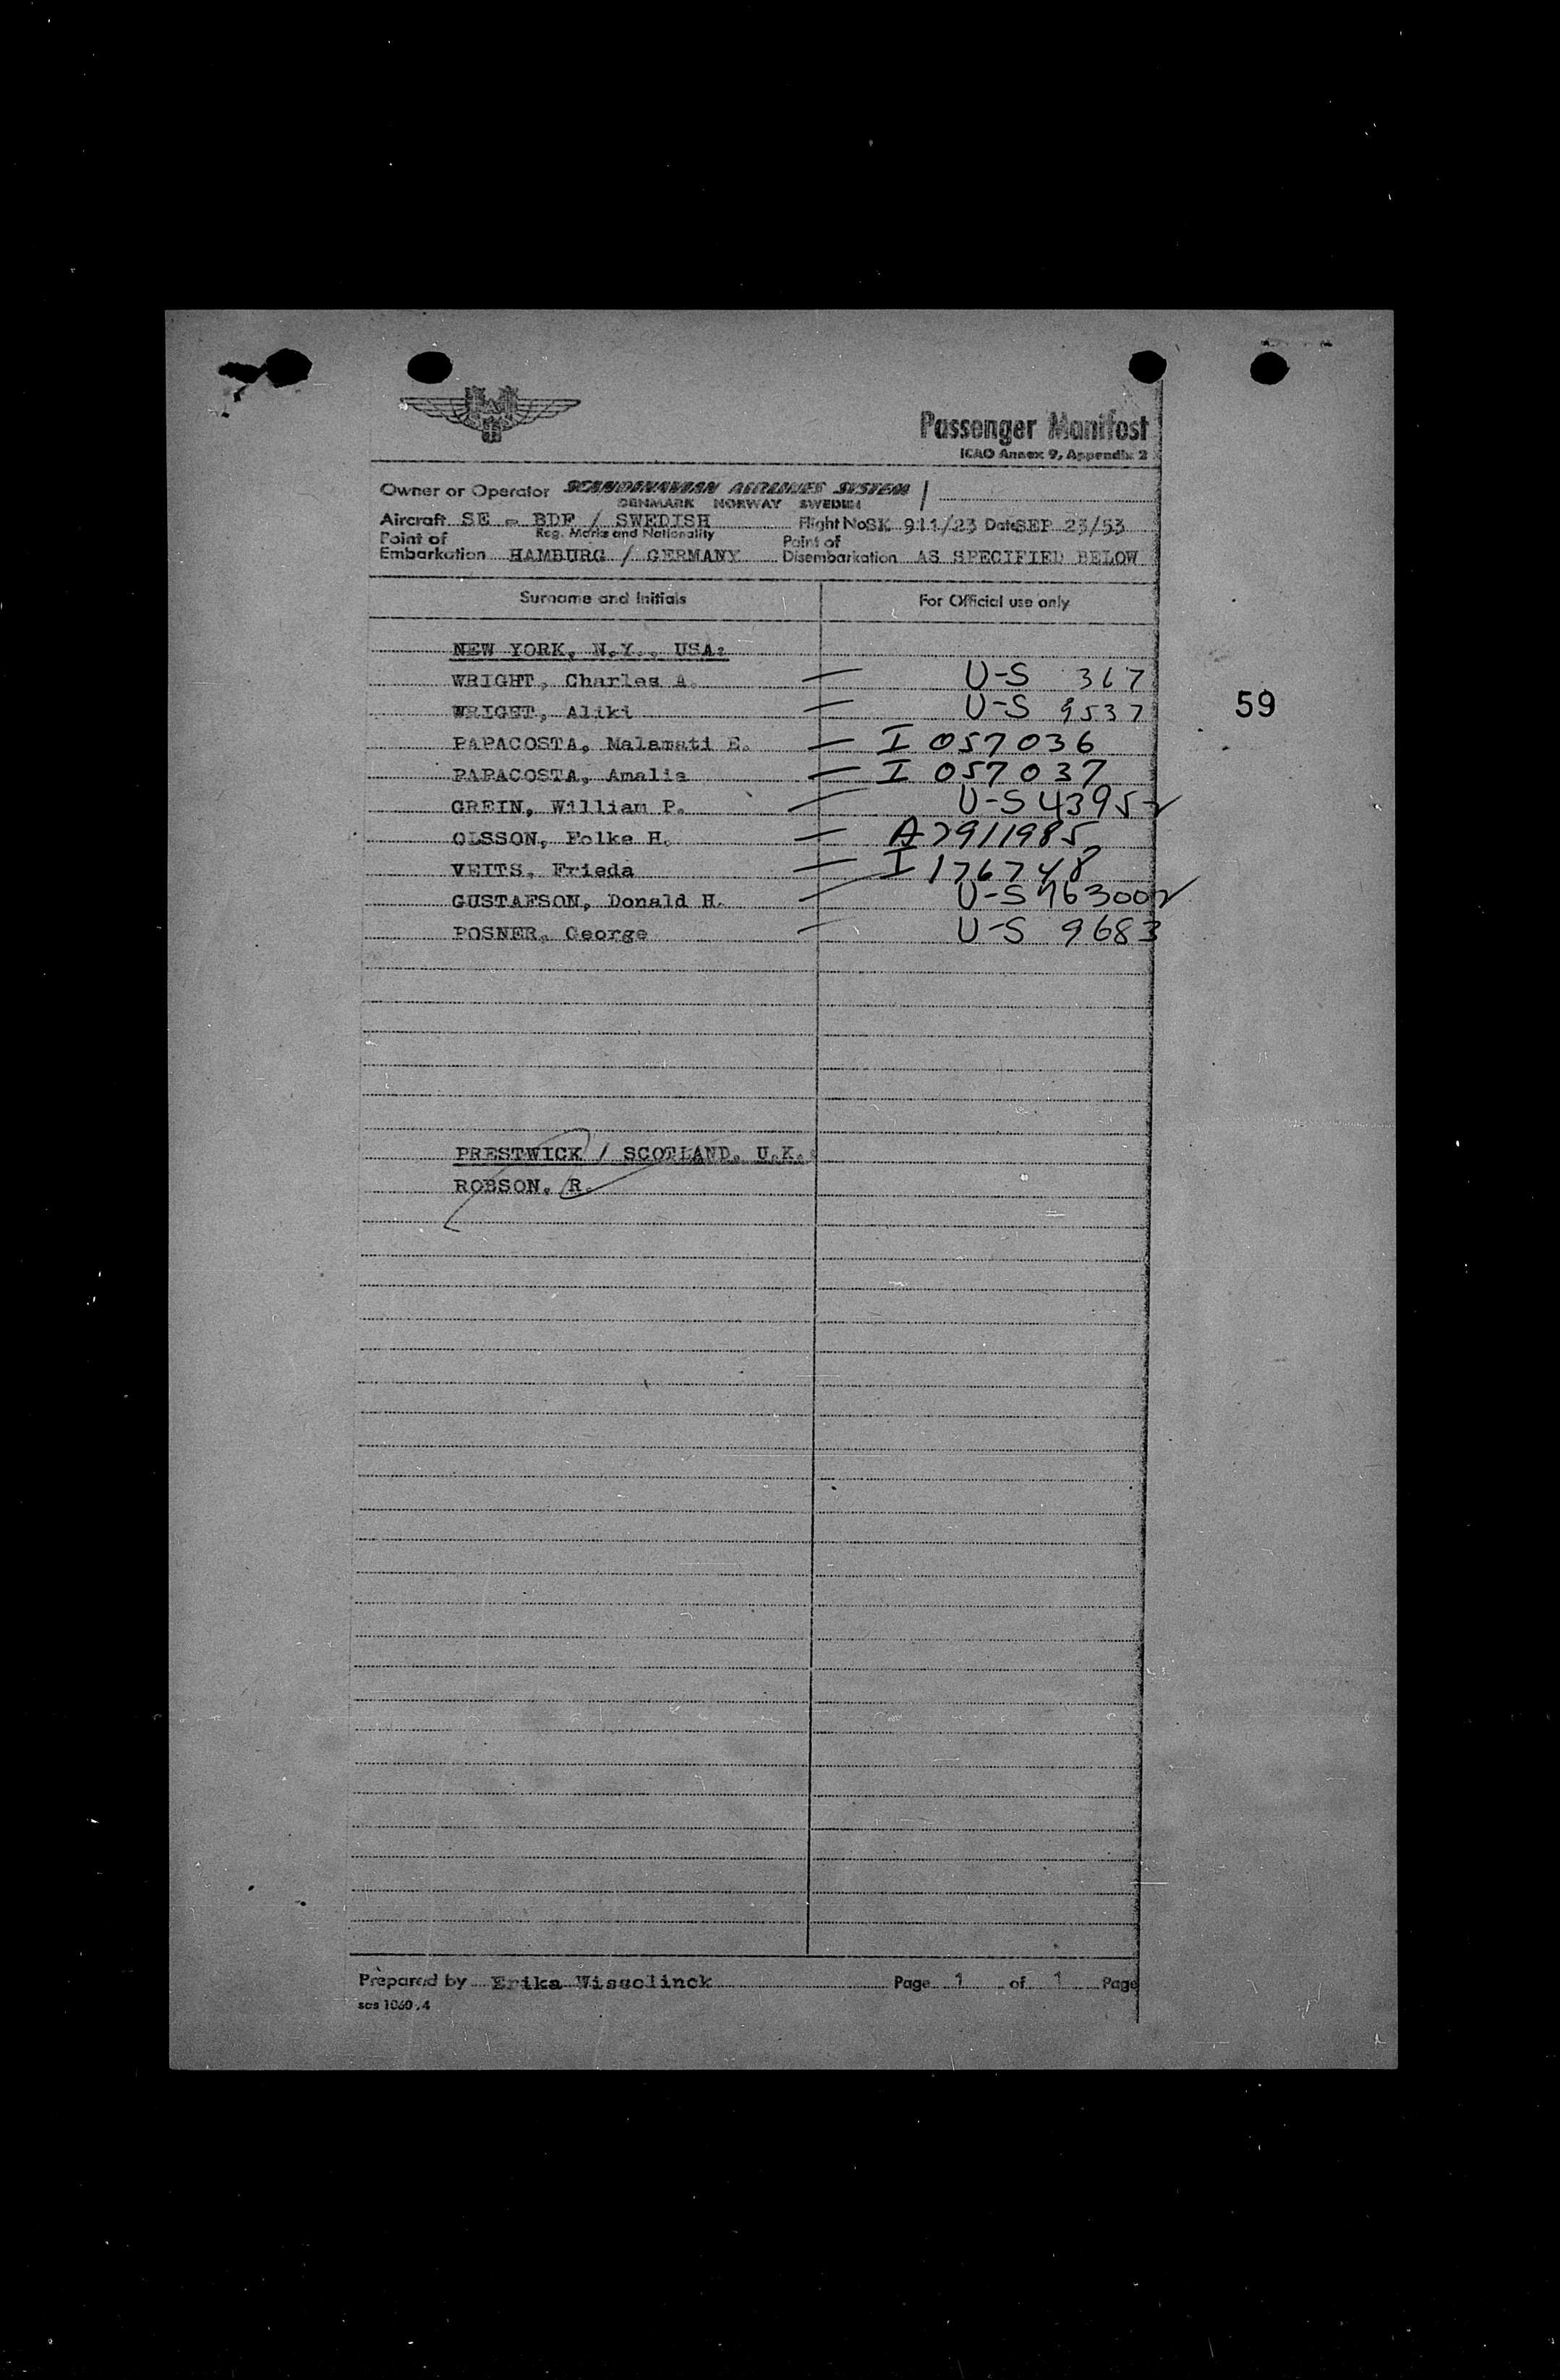 Passenger Manifest
ICAO Annex 9, Appendix 2
Owner or Operator SCANDINAVIAN AIRLINES SYSTEM
DENMARK NORWAY SWEDEN
Aircraft SE - BDF / SWEDISH Flight No SK 911/23 Date SEP 23/53
Reg. Marks and Nationality
Point of Embarkation HAMBURG / GERMANY Point of Disembarkation AS SPECIFIED BELOW
Surname and Initials For Official use only
NEW YORK, N.Y., USA:
WRIGHT, Charles A. — U-S 367
WRIGHT, Aliki — U-S 9537
59
PAPACOSTA, Malamati E. — I 057036
PAPACOSTA, Amalia — I 057037
GREIN, William P. — U-S 4395
OLSSON, Folke H. — A7911985
VEITS, Frieda — I 176748
GUSTAFSON, Donald H. — U-S
POSNER, George — U-S 9683
PRESTWICK / SCOTLAND, U.K.:
ROBSON, R.
Prepared by Erika Wisselinck Page 1 of 1 Page
sas 1060.4